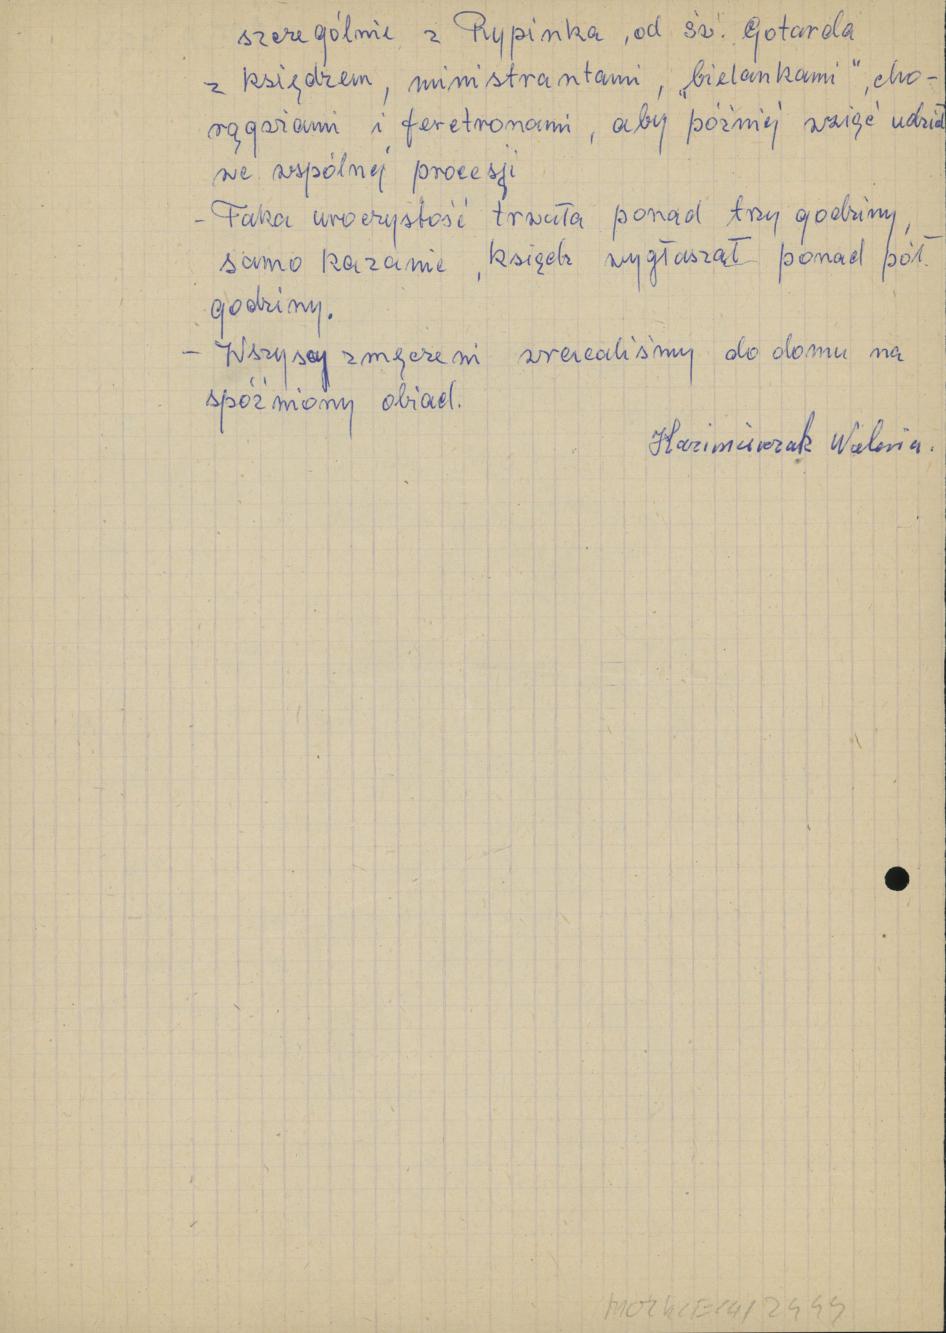 szczególnie z Rypinka, od św. Gotarda
z księdzem, ministrantami, „bielankami", cho-
rągwiami i feretronami, aby później wziąć udział
we wspólnej procesji
- Taka uroczystość trwała ponad trzy godziny,
samo kazanie, ksiądz wygłaszał ponad pół
godziny.
- Wszyscy zmęczeni wracaliśmy do domu na
spóźniony obiad.
Kazimierczak Waleria.